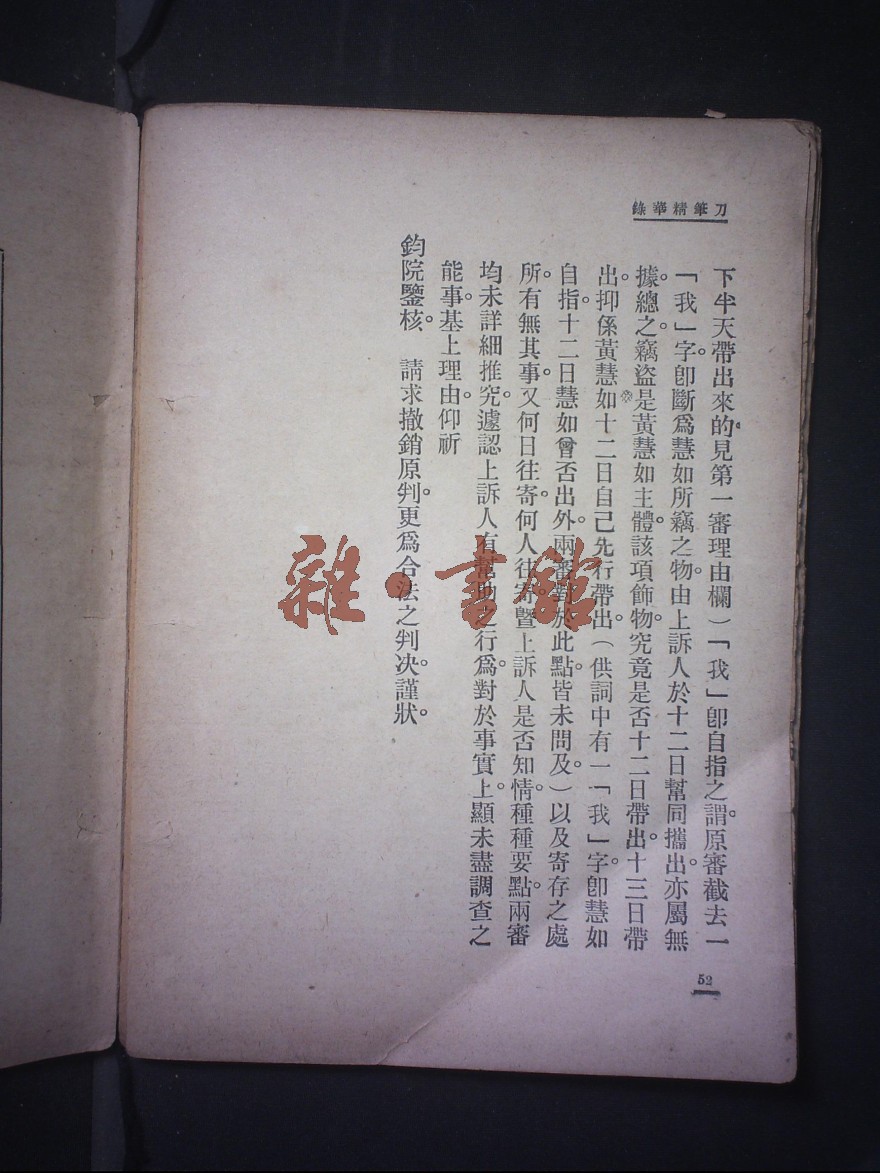 刀筆精華錄
下半天帶出來的。見第一審理由欄)「我」卽自指之謂。原審截去一
「我」字。卽斷爲慧如所竊之物。由上訴人於十二日幫同攜出。亦屬無
據。總之。竊盜是黃慧如主體。該項飾物。究竟是否十二日帶出。十三日帶
出。抑係黃慧如十二日自己先行帶出。(供詞中有一「我」字。卽慧如
自指。十二日慧如曾否出外。兩審對於此點。皆未問及。)以及寄存之處
所。有無其事。又何日往寄。何人往寄。曁上訴人是否知情。種種要點。兩審
均未詳細推究。遽認上訴人有幫助之行爲。對於事實上。顯未盡調查之
能事。基上理由。仰祈
鈞院鑒核。 請求撤銷原判。更爲合法之判决。謹狀。
52
雜·書館